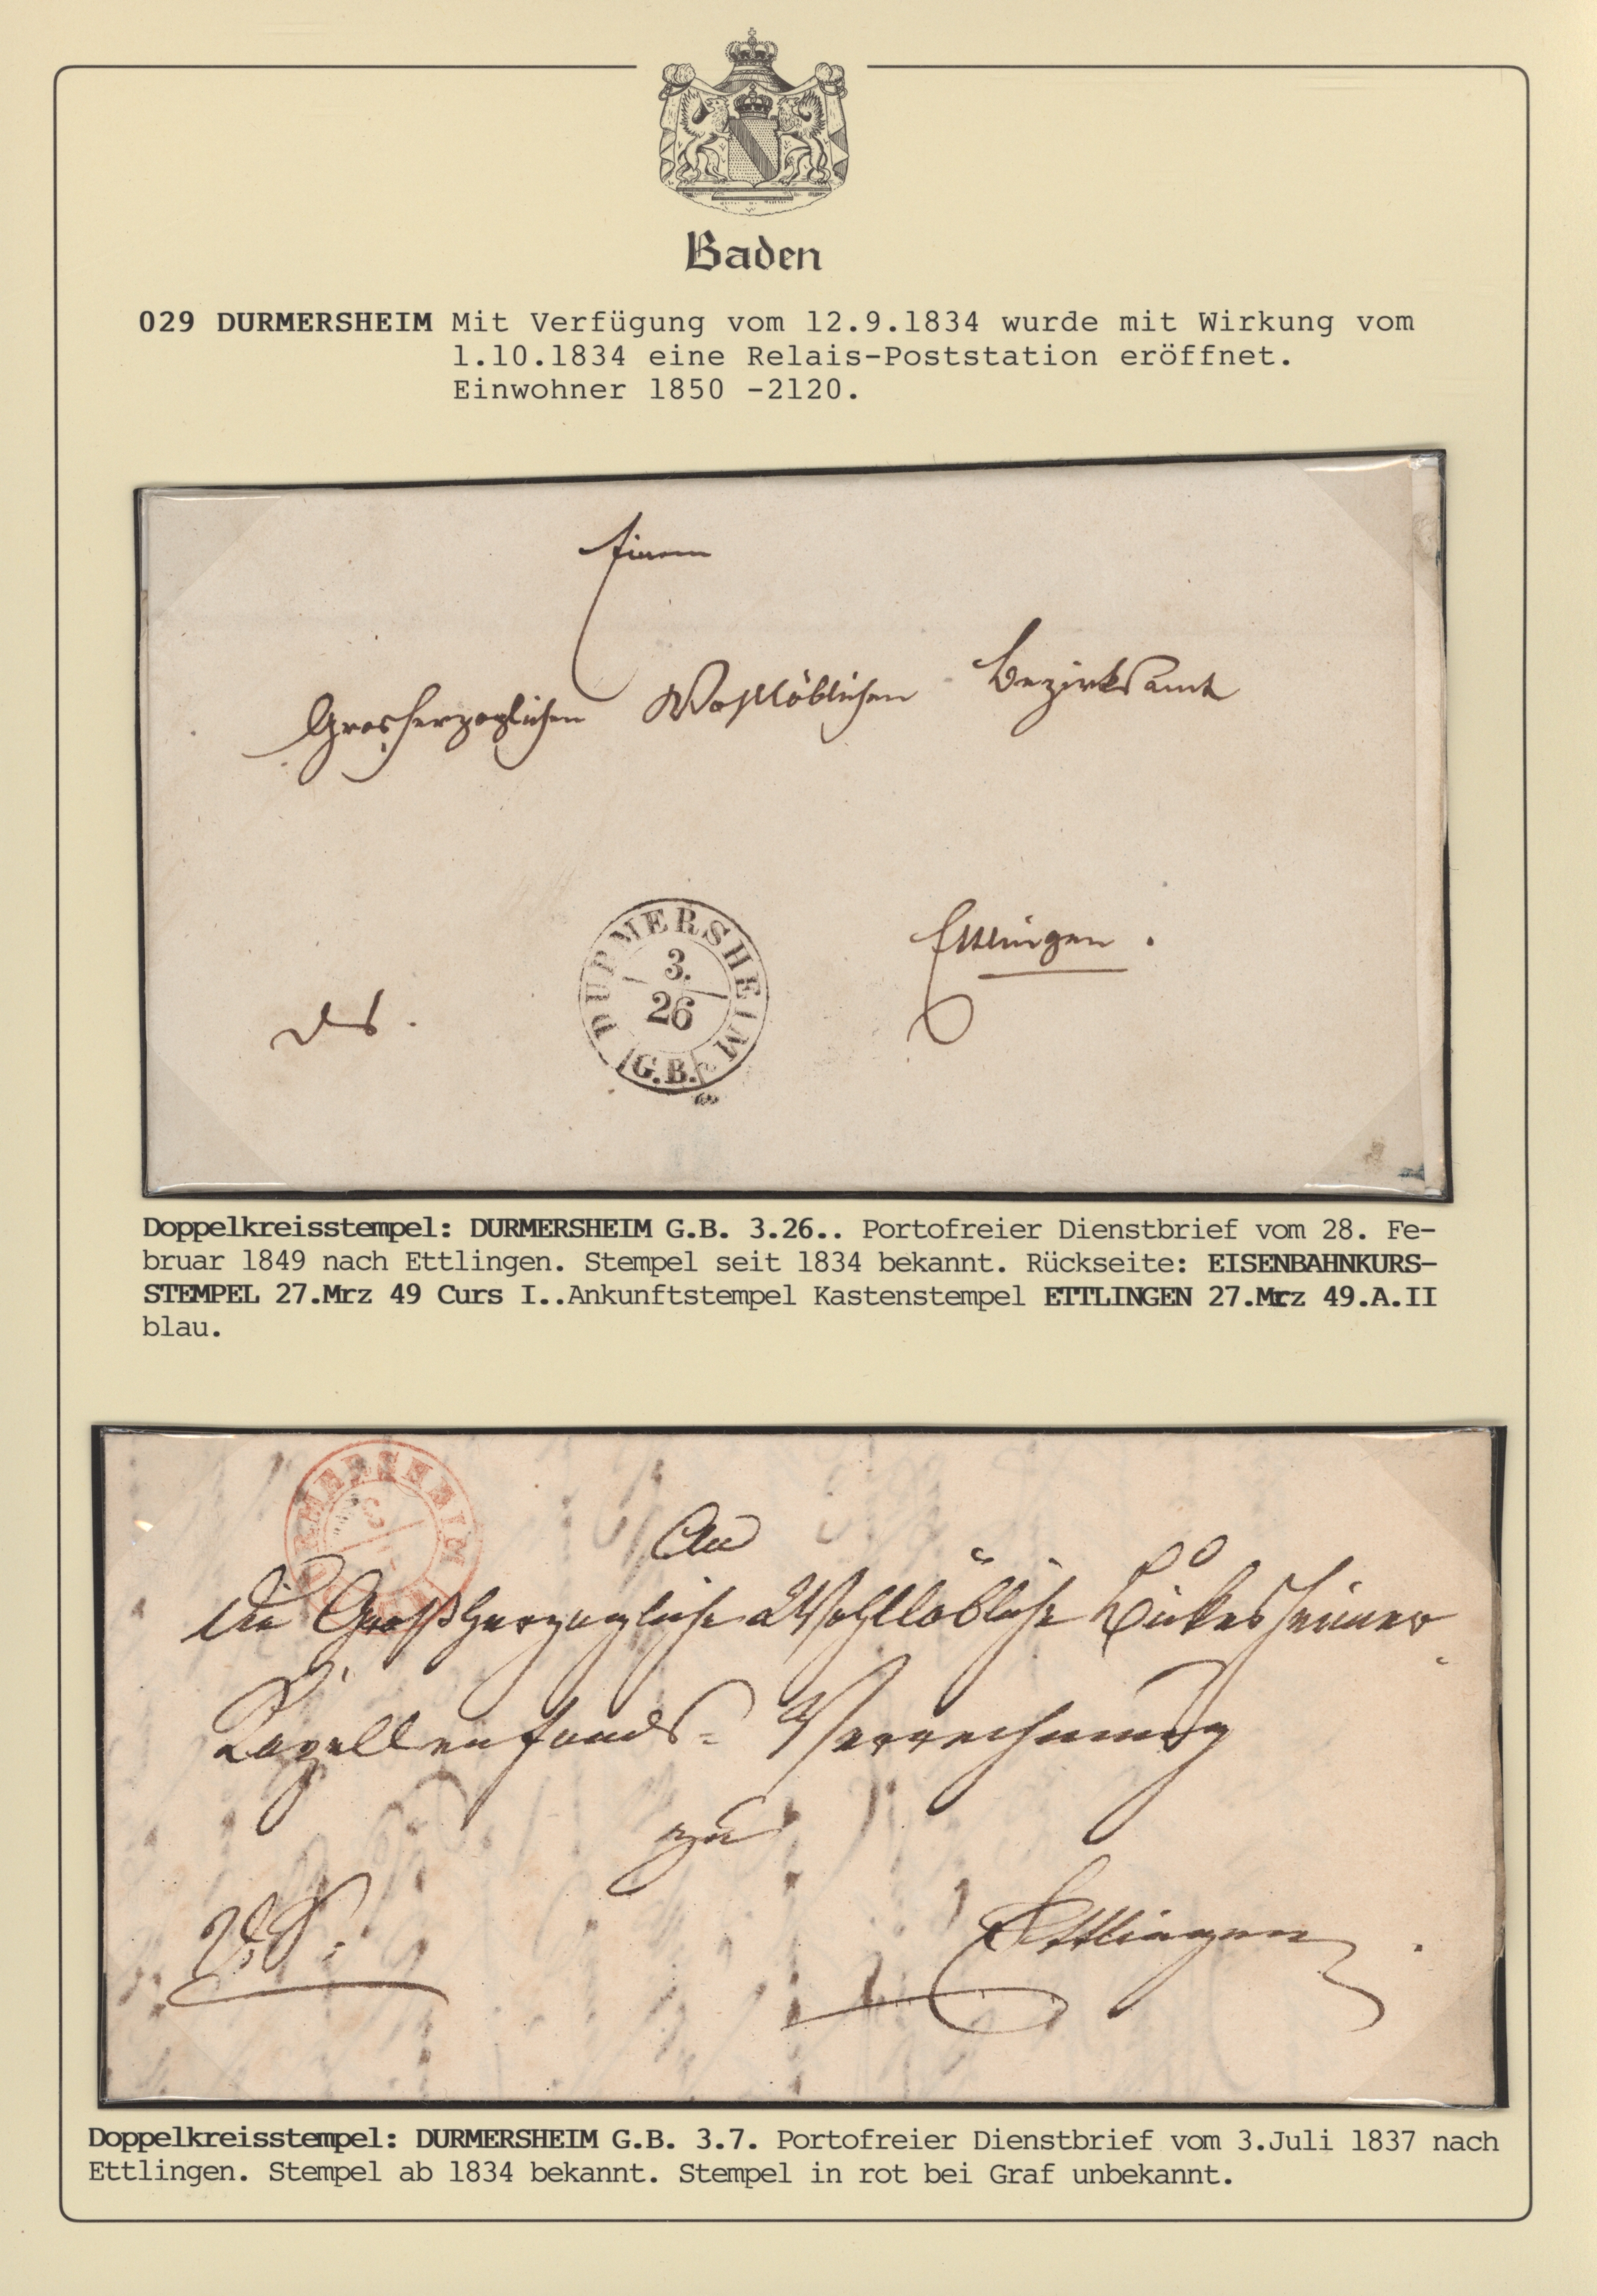 Baden
029 DURMERSHEIM Mit Verfügung vom 12.9.1834 wurde mit Wirkung vom
1.10.1834 eine Relais-Poststation eröffnet.
Einwohner 1850 -2120.
Einem
Grosherzoglichen Wohllöblichen Bezirksamt
DURMERSHEIM
3.
26
G.B.
Ettlingen.
Doppelkreisstempel: DURMERSHEIM G.B. 3.26.. Portofreier Dienstbrief vom 28. Fe-
bruar 1849 nach Ettlingen. Stempel seit 1834 bekannt. Rückseite: EISENBAHNKURS-
STEMPEL 27.Mrz 49 Curs I..Ankunftstempel Kastenstempel ETTLINGEN 27.Mrz 49.A.II
blau.
An
die Großherzogliche Wohllöbliche Bickesheimer
Kapellenfonds= Verrechnung
zu
Ettlingen.
Doppelkreisstempel: DURMERSHEIM G.B. 3.7. Portofreier Dienstbrief vom 3.Juli 1837 nach
Ettlingen. Stempel ab 1834 bekannt. Stempel in rot bei Graf unbekannt.